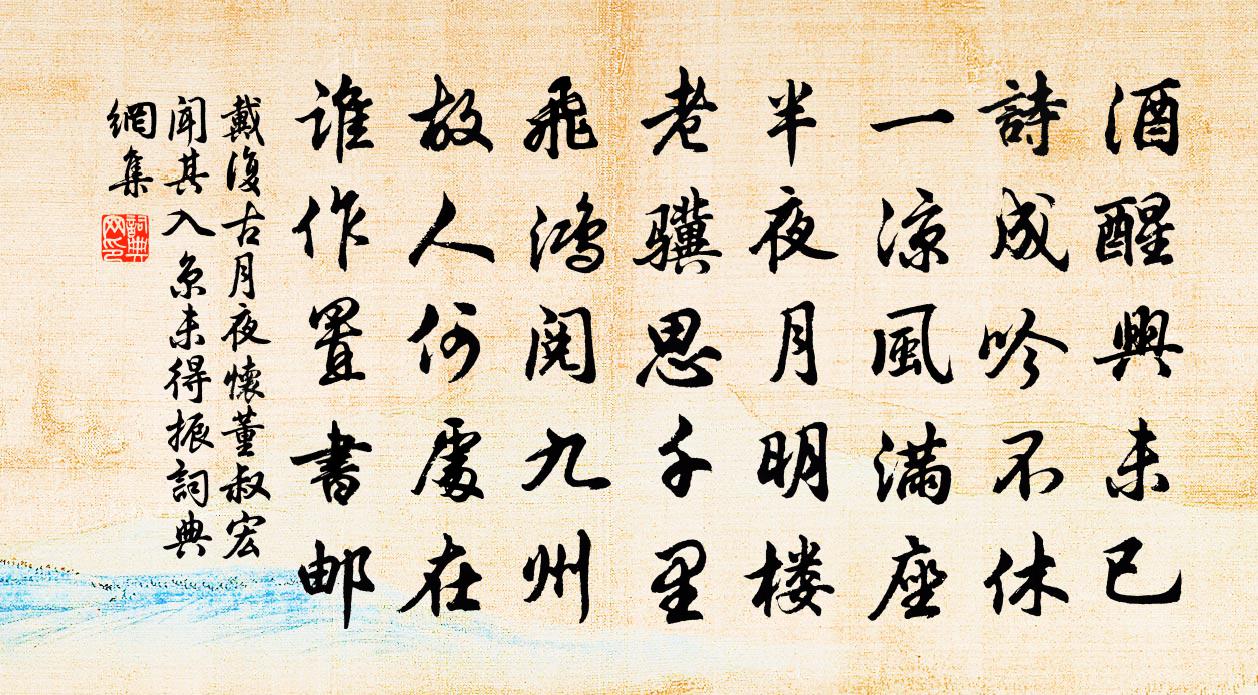 酒醒興未已
詩成吟不休
一凉風满座
半夜月明楼
老骥思千里
飛鴻閱九州
故人何處在
谁作置書邮
戴復古月夜懷董叔宏
聞其入京未得振詞典
網集
詞典網印